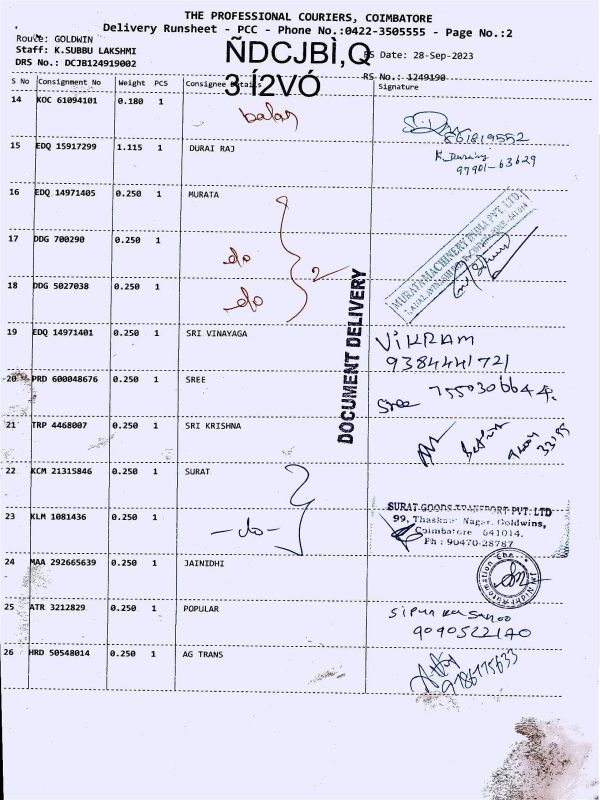 THE PROFESSIONAL COURIERS, COIMBATORE
Delivery Runsheet - PCC - Phone No.:0422-3505555 - Page No.:2
Route: GOLDWIN
Staff: K.SUBBU LAKSHMI
ÑDCJBÌ,Q
RS Date: 28-Sep-2023
DRS No.: DCJB124919002
3 Í2VÓ
RS No.: 1249190
S No Consignment No Weight PCS Consignee Details Signature
14 KOC 61094101 0.180 1 balaji
861819552
15 EDQ 15917299 1.115 1 DURAI RAJ
97901-63629
16 EDQ 14971405 0.250 1 MURATA
MURATA MACHINERY INDIA PVT. LTD.
17 DDG 700290 0.250 1 do
2
18 DDG 5027038 0.250 1 do
DOCUMENT DELIVERY
19 EDQ 14971401 0.250 1 SRI VINAYAGA
VIKRAM
9384441721
20 PRD 600048676 0.250 1 SREE
Sree
21 TRP 4468007 0.250 1 SRI KRISHNA
22 KCM 21315846 0.250 1 SURAT
SURAT GOODS TRANSPORT PVT. LTD
99, Thaskar Nagar, Goldwins,
Coimbatore 641014.
Ph : 90470-28787
23 KLM 1081436 0.250 1 -do-
24 MAA 292665639 0.250 1 JAINIDHI
25 ATR 3212829 0.250 1 POPULAR
9090522170
26 HRD 50548014 0.250 1 AG TRANS
9786775633